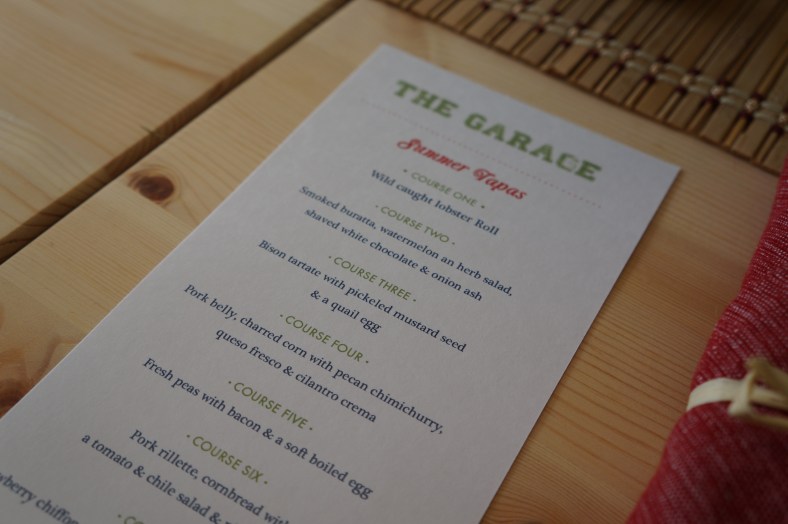 THE GARAGE
Summer Tapas
· COURSE ONE ·
Wild caught lobster Roll
· COURSE TWO ·
Smoked buratta, watermelon an herb salad,
shaved white chocolate & onion ash
· COURSE THREE ·
Bison tartate with pickeled mustard seed
& a quail egg
· COURSE FOUR ·
Pork belly, charred corn with pecan chimichurry,
queso fresco & cilantro crema
· COURSE FIVE ·
Fresh peas with bacon & a soft boiled egg
· COURSE SIX ·
Pork rillette, cornbread with
a tomato & chile salad &
chiffon